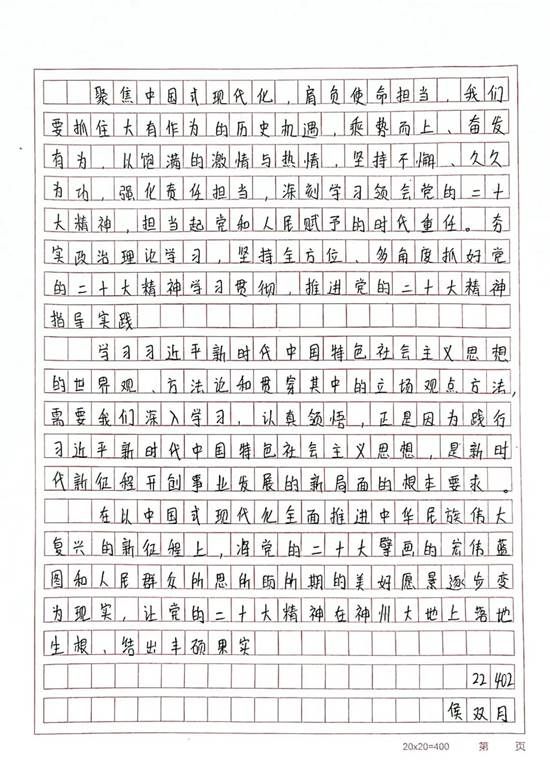 聚焦中国式现代化，肩负使命担当，我们
要抓住大有作为的历史机遇，乘势而上、奋发
有为，以饱满的激情与热情，坚持不懈、久久
为功，强化责任担当，深刻学习领会党的二十
大精神，担当起党和人民赋予的时代重任。夯
实政治理论学习，坚持全方位、多角度抓好党
的二十大精神学习贯彻，推进党的二十大精神
指导实践
学习习近平新时代中国特色社会主义思想
的世界观、方法论和贯穿其中的立场观点方法，
需要我们深入学习，认真领悟，正是因为践行
习近平新时代中国特色社会主义思想，是新时
代新征程开创事业发展的新局面的根本要求。
在以中国式现代化全面推进中华民族伟大
复兴的新征程上，将党的二十大擘画的宏伟蓝
图和人民群众所思所盼所期的美好愿景逐步变
为现实，让党的二十大精神在神州大地上落地
生根、结出丰硕果实
22402
侯双月
20x20=400 第 页